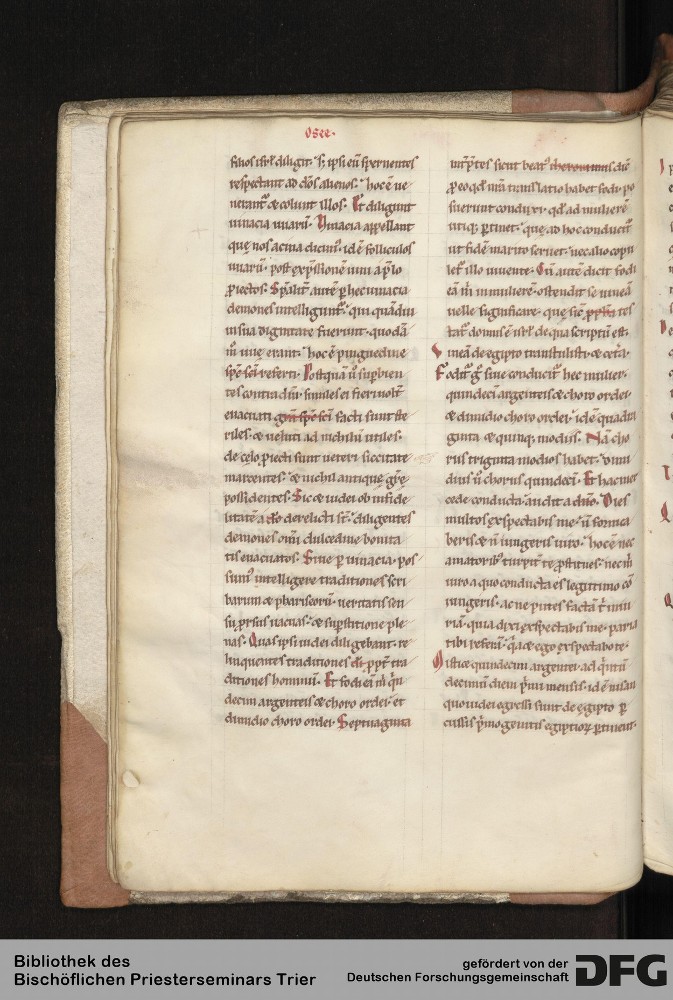 Osee.
filios isrl diligit. S; ipsi eū spernentes
respectant ad dōs alienos. hoc ē ue
nerant᷑ & colunt illos. Et diligunt
uinacia uuarū. Vinacia appellant
quę nos acina dicim᷒. id ē folliculos
uuarū. post exp̄ssionē uini a p̄lo
ꝓiectos. Sp̄alit̄ autē ꝑ hec uinacia
demones intelligunt᷑. qui quādiu
in sua dignitate fuerunt. quodā
m̊ uuę erant. hoc ē pinguedine
sp̄c sc̄i referti. Postquā ū superbien
tes contra dm̄. similes ei fieri uolūt
euacuati grā sp̄c sc̄i facti sunt ste
riles. & ueluti ad nichilū utiles.
de cęlo ꝓiecti sunt ueteri siccitate
marcentes. & nichil antiquę grę
possidentes. Sic & iudei ob infide
litatē a dō derelicti st̄. diligentes
demones omī dulcedine bonita
tis euacuatos. Siue ꝑ uinacia. pos
sum᷒ intelligere traditiones scri
barum & phariseorū. ueritatis sen
su ꝓrsus uacuas. & suꝑstitione ple
nas. Quas ipsi iudei diligebant. re
linquentes traditiones dī. ꝓpt̄ tra
ditiones hominū. Et fodi eā m̄ q̇n
decim argenteis & choro ordei. et
dimidio choro ordei. Septuaginta
int̄p̄tes sicut beat᷒ iheronimus dic̄
ꝓ eo qd̄ nrā translatio habet fodi. po
suerunt conduxi. qd̄ ad mulierē
utiq; ꝑtinet. que ad hoc conducit᷑
ut fidē marito seruet. nec alio copu
let᷑ illo uiuente. Cū autē dicit fodi
eā m̄ in mulierē. ostendit se uineā
uelle significare. quę sic̄ ꝓph̄a tes
tat᷑ domus ē isrl. de qua scriptū est.
Vineā de egipto transtulisti. & cet̄a.
Fodit᷑ g̊ siue conducit᷑ hec mulier.
quindecī argenteis & choro ordei.
& dimidio choro ordei. id ē quadra
ginta & quinq; modiis. Nā cho
rus triginta modios habet. dimi
dius ū chorus quindecī. Et hac mer
cede conducta. audit a dn̄o. Dies
multos exspectabis me. n̄ fornica
beris. & n̄ iungeris uiro. hoc ē nec
amatorib᷒ turpit̄ te ꝓstitues. nec m̄
uiro a quo conducta es legittimo cō
iungeris. ac ne putes factā t̄ iniu
riā. quia dixi exspectabis me. paria
tibi referā. q̇a & ego exspectabo te.
Isti & quindecim argentei. ad q̇ntū
decimū diem pͥmi mensis. id ē nisan
quo iudei egressi sunt de egipto ꝑ
cussis pͥmogenitis egiptioꝝ ꝑtinent.
Bibliothek des
Bischöflichen Priesterseminars Trier
gefördert von der
Deutschen Forschungsgemeinschaft
DFG